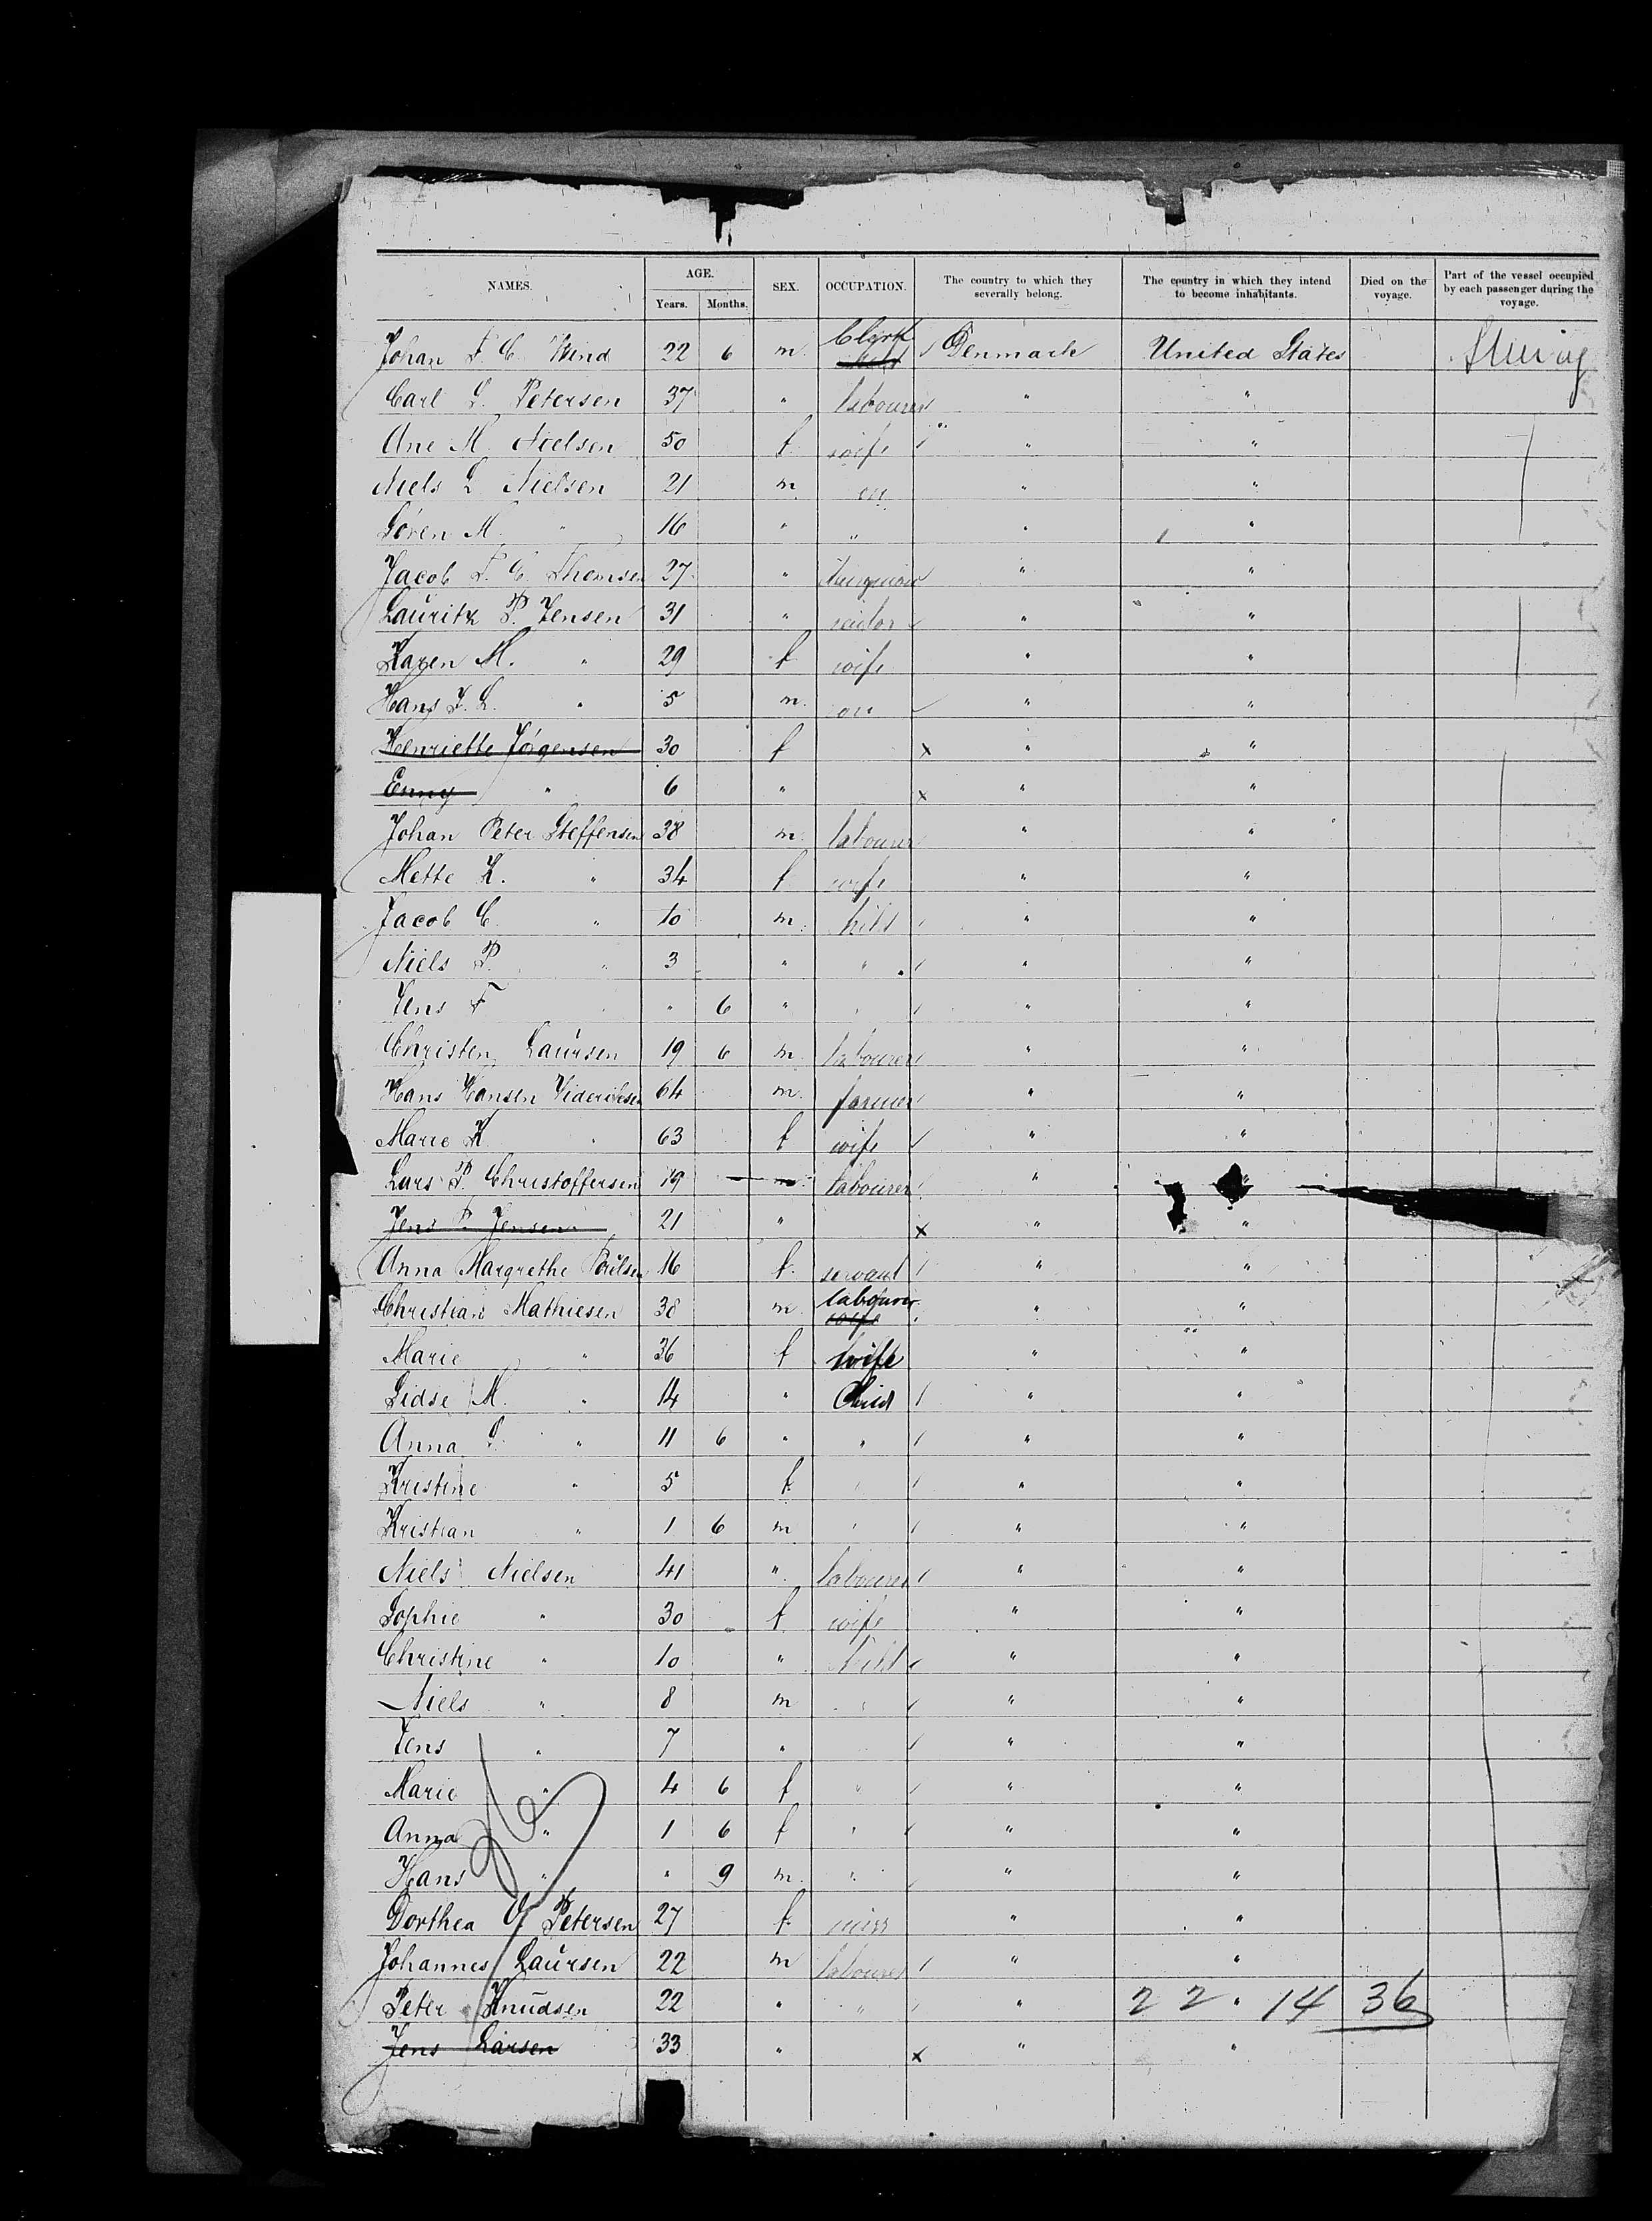 NAMES. AGE. SEX. OCCUPATION. The country to which they severally belong. The country in which they intend to become inhabitants. Died on the voyage. Part of the vessel occupied by each passenger during the voyage.
Years. Months.
Johan F. C. Wind 22 6 m. Clerk Denmark United States
Carl L. Petersen 37 " labourer " "
Ane M. Nielsen 50 f. wife " "
Niels L. Nielsen 21 m. " "
Sören M. " 16 " " " "
Jacob F. C. Thomsen 27 " " "
Lauritz P. Jensen 31 " " "
Karen M. " 29 f wife " "
Hans J. L. " 5 m. " "
Henriette Jörgensen 30 f x " "
Enny " 6 " x " "
Johan Peter Steffensen 38 m. labourer " "
Mette K. " 34 f wife " "
Jacob C. " 10 m. " "
Niels P. " 3 " " " "
Jens F " 6 " " "
Christen Laursen 19 6 m. labourer " "
Hans Hansen Videriksen 64 m. farmer " "
Marie K. " 63 f wife " "
Lars P. Christoffersen 19 labourer " "
Jens P. Jensen 21 " x " "
Anna Margrethe 16 f. servant " "
Christian Mathiesen 38 m. labourer wife " "
Marie " 36 f wife " "
Lidse M. " 14 " Child " "
Anna L. " 11 6 " " " "
Kristine " 5 f. " " "
Kristian " 1 6 m " " "
Niels Nielsen 41 " labourer " "
Sophie " 30 f. wife " "
Christine " 10 " child " "
Niels " 8 m " " "
Jens " 7 " " "
Marie " 4 6 f " " "
Anna " 1 6 f " " "
Hans " " 9 m. " " "
Dorthea Petersen 27 f. miss " "
Johannes Laursen 22 m labourer " "
Peter Knudsen 22 " " " 22 " 14 36
Jens Larsen 33 " x " "